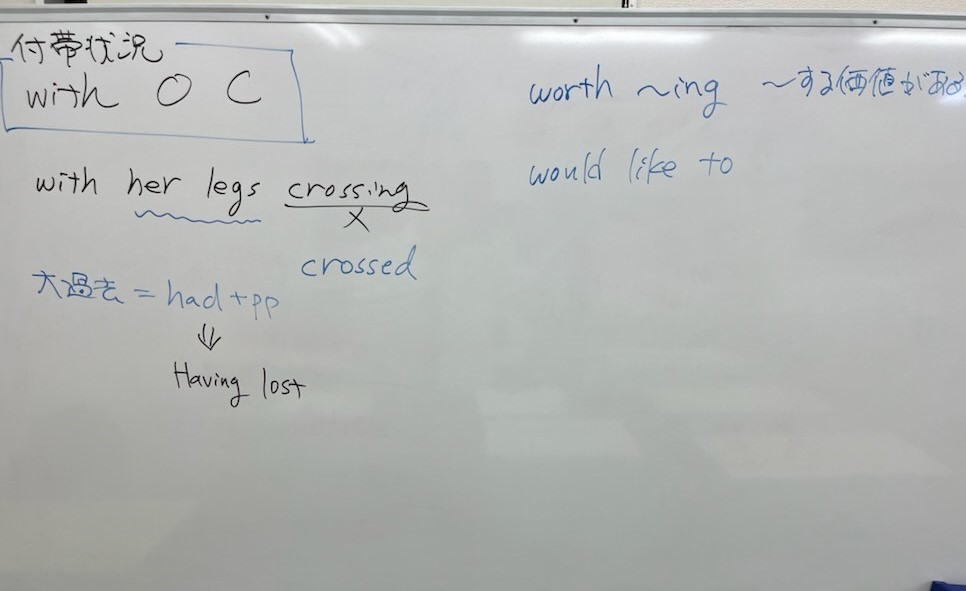 付帯状況
with O C
with her legs crossing
×
crossed
大過去 = had+pp
⇓
Having lost
worth ~ing ~する価値がある
would like to